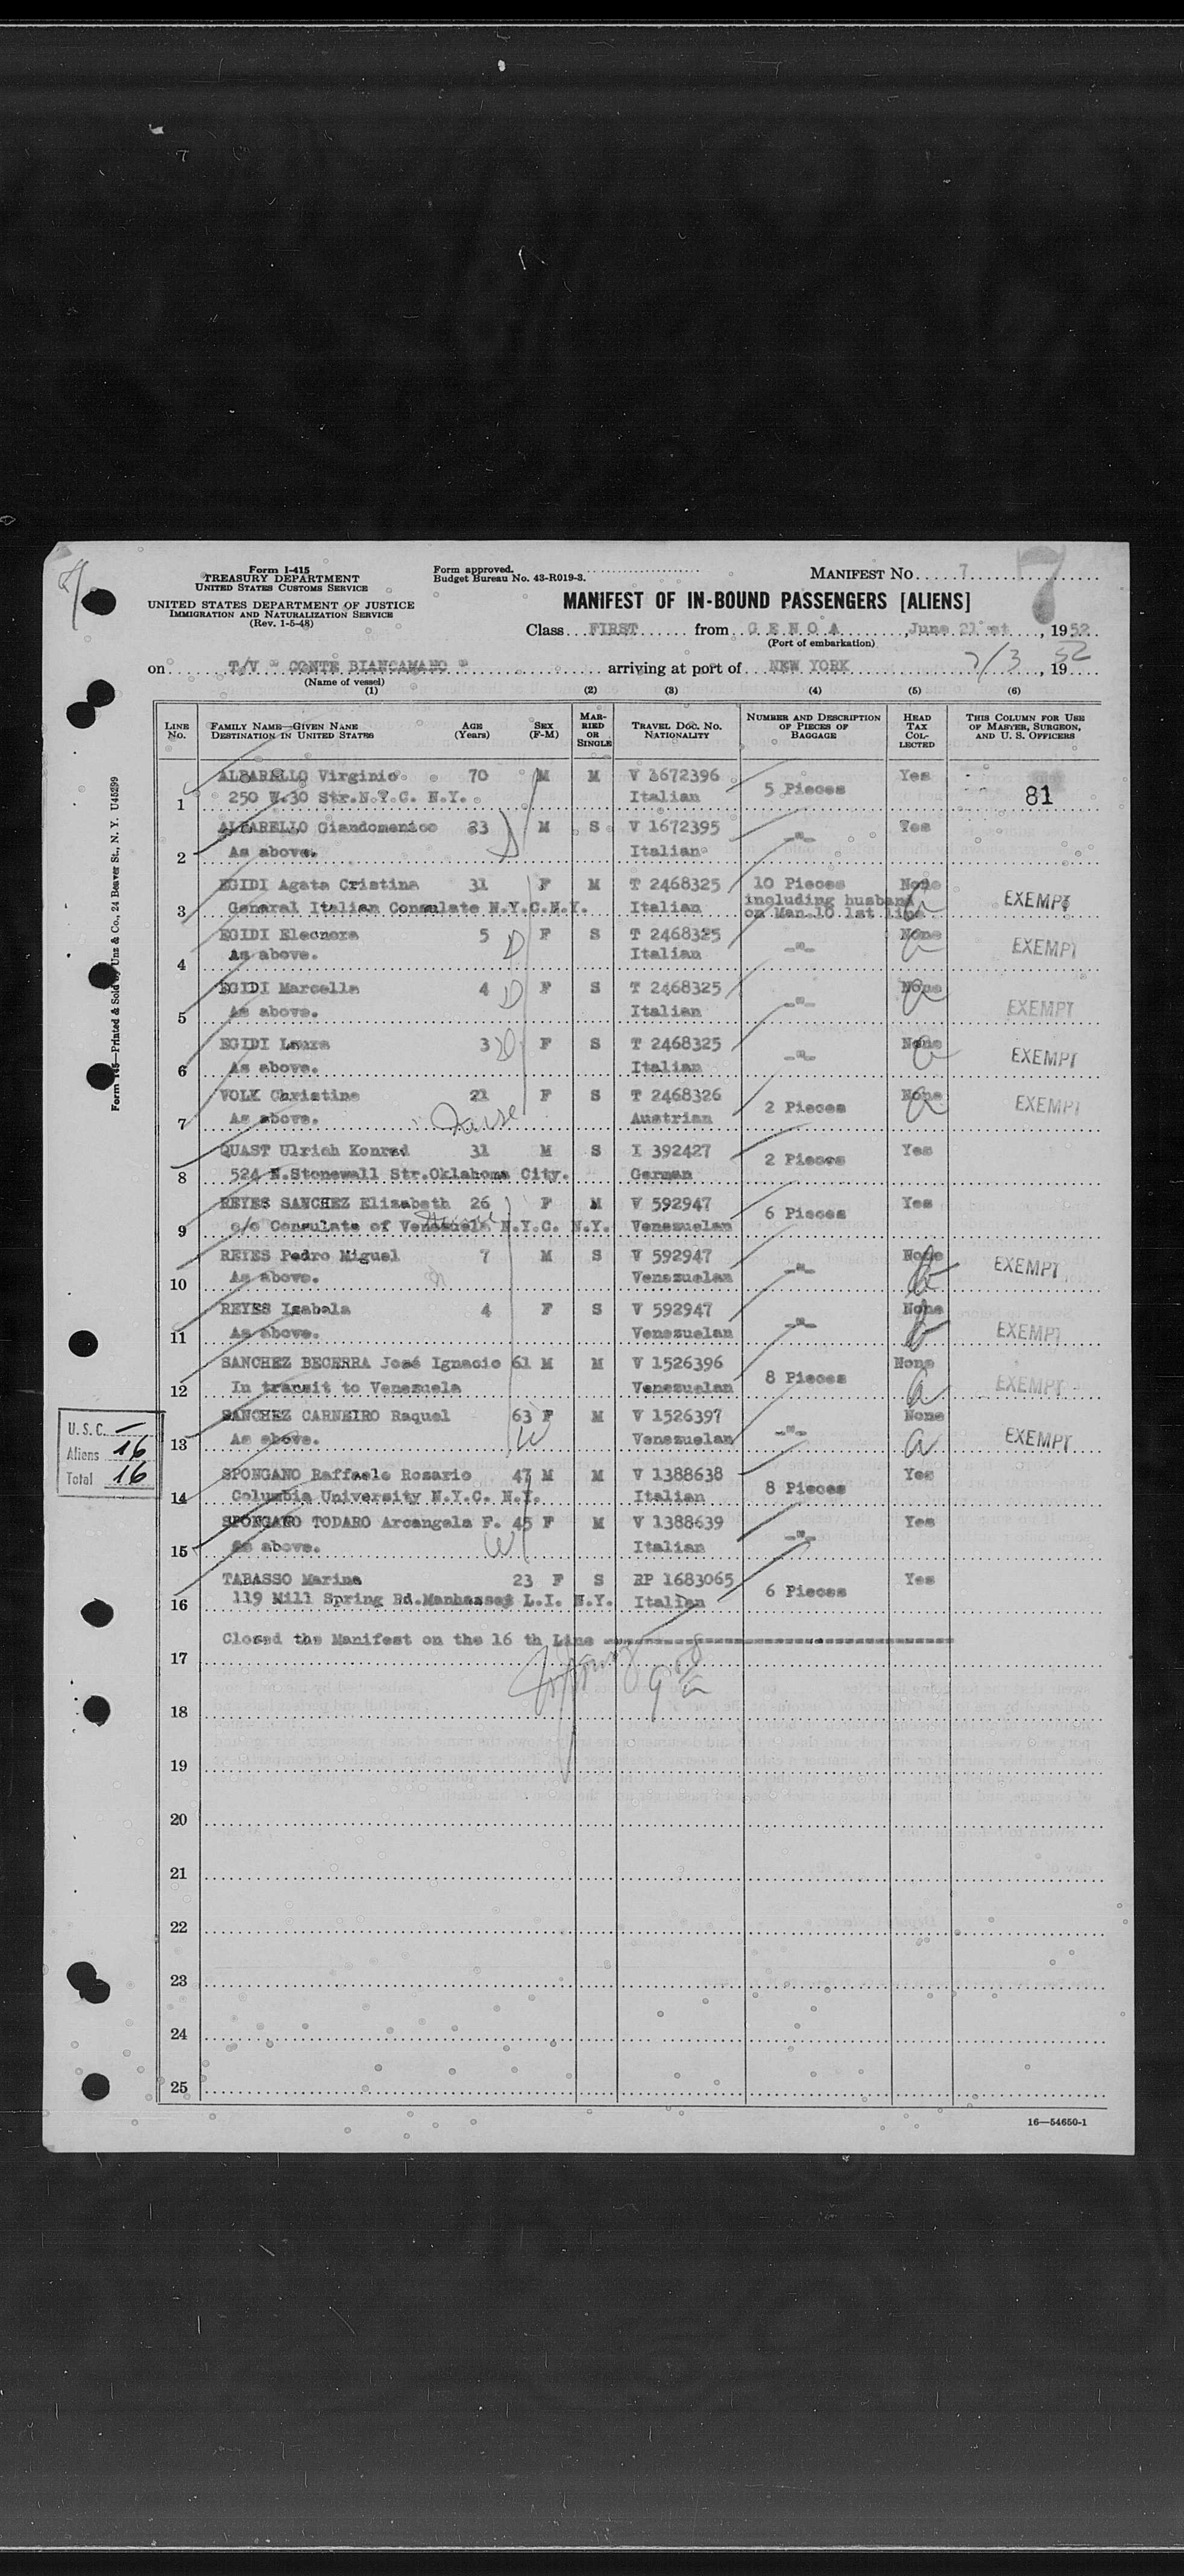 Form I-415
TREASURY DEPARTMENT
UNITED STATES CUSTOMS SERVICE
UNITED STATES DEPARTMENT OF JUSTICE
IMMIGRATION AND NATURALIZATION SERVICE
(Rev. 1-5-48)
Form approved.
Budget Bureau No. 43-R019-3.
MANIFEST NO. 7
7
MANIFEST OF IN-BOUND PASSENGERS [ALIENS]
Class FIRST from G E N O A, June 21 st, 1952
(Port of embarkation)
on T/V " CONTE BIANCAMANO " arriving at port of NEW YORK 7/3, 1952
(Name of vessel)
(1) (2) (3) (4) (5) (6)
LINE NO. FAMILY NAME—GIVEN NAME DESTINATION IN UNITED STATES AGE (Years) SEX (F-M) MARRIED OR SINGLE TRAVEL DOC. NO. NATIONALITY NUMBER AND DESCRIPTION OF PIECES OF BAGGAGE HEAD TAX COLLECTED THIS COLUMN FOR USE OF MASTER, SURGEON, AND U. S. OFFICERS
ALPARELLO Virginio 70 M M V 1672396 5 Pieces Yes 81
1 250 W.30 Str.N.Y.C. N.Y. Italian
ALPARELLO Giandomenico 33 M S V 1672395 -"- Yes
2 As above. Italian
EGIDI Agata Cristina 31 F M T 2468325 10 Pieces None EXEMPT
3 General Italian Consulate N.Y.C.N.Y. Italian including husband on Man.10 1st line
EGIDI Eleonora 5 F S T 2468325 -"- None EXEMPT
4 As above. Italian
EGIDI Marcella 4 F S T 2468325 -"- None EXEMPT
5 As above. Italian
EGIDI Laura 3 F S T 2468325 -"- None EXEMPT
6 As above. Italian
VOLK Christine 21 F S T 2468326 2 Pieces None EXEMPT
7 As above. Austrian
QUAST Ulrich Konrad 31 M S I 392427 2 Pieces Yes
8 524 N.Stonewall Str.Oklahoma City. German
REYES SANCHEZ Elizabeth 26 F M V 592947 6 Pieces Yes
9 c/o Consulate of Venezuela N.Y.C. N.Y. Venezuelan
REYES Pedro Miguel 7 M S V 592947 -"- None EXEMPT
10 As above. Venezuelan
REYES Isabela 4 F S V 592947 -"- None EXEMPT
11 As above. Venezuelan
SANCHEZ BECERRA José Ignacio 61 M M V 1526396 8 Pieces None EXEMPT
12 In transit to Venezuela Venezuelan
SANCHEZ CARNEIRO Raquel 63 F M V 1526397 -"- None EXEMPT
13 As above. Venezuelan
SPONGANO Raffaele Rosario 47 M M V 1388638 8 Pieces Yes
14 Columbia University N.Y.C. N.Y. Italian
SPONGANO TODARO Arcangela F. 45 F M V 1388639 -"- Yes
15 As above. Italian
TABASSO Marina 23 F S RP 1683065 6 Pieces Yes
16 119 Mill Spring Rd.Manhasset L.I. N.Y. Italian
Closed the Manifest on the 16 th Line
17
18
19
20
21
22
23
24
25
U.S.C. —
Aliens 16
Total 16
16—54650-1